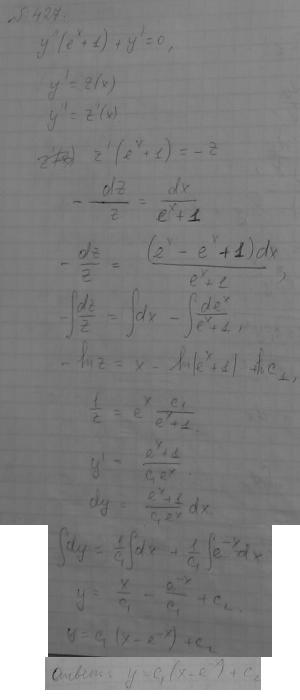 № 427.
y''(eˣ+1)+y'=0,
y' = z(x)
y'' = z'(x)
z'(eˣ+1) = -z
-dz/z = dx/(eˣ+1)
-dz/z = (eˣ - eˣ + 1)dx/(eˣ+1),
-∫dz/z = ∫dx - ∫deˣ/(eˣ+1),
-ln z = x - ln|eˣ+1| + ln c₁,
1/z = eˣ c₁/(eˣ+1).
y' = (eˣ+1)/(c₁eˣ).
dy = (eˣ+1)/(c₁eˣ) dx
∫dy = 1/c₁ ∫dx + 1/c₁ ∫e⁻ˣdx
y = x/c₁ - e⁻ˣ/c₁ + c₂
y = c₁(x-e⁻ˣ)+c₂
Ответ: y=c₁(x-e⁻ˣ)+c₂